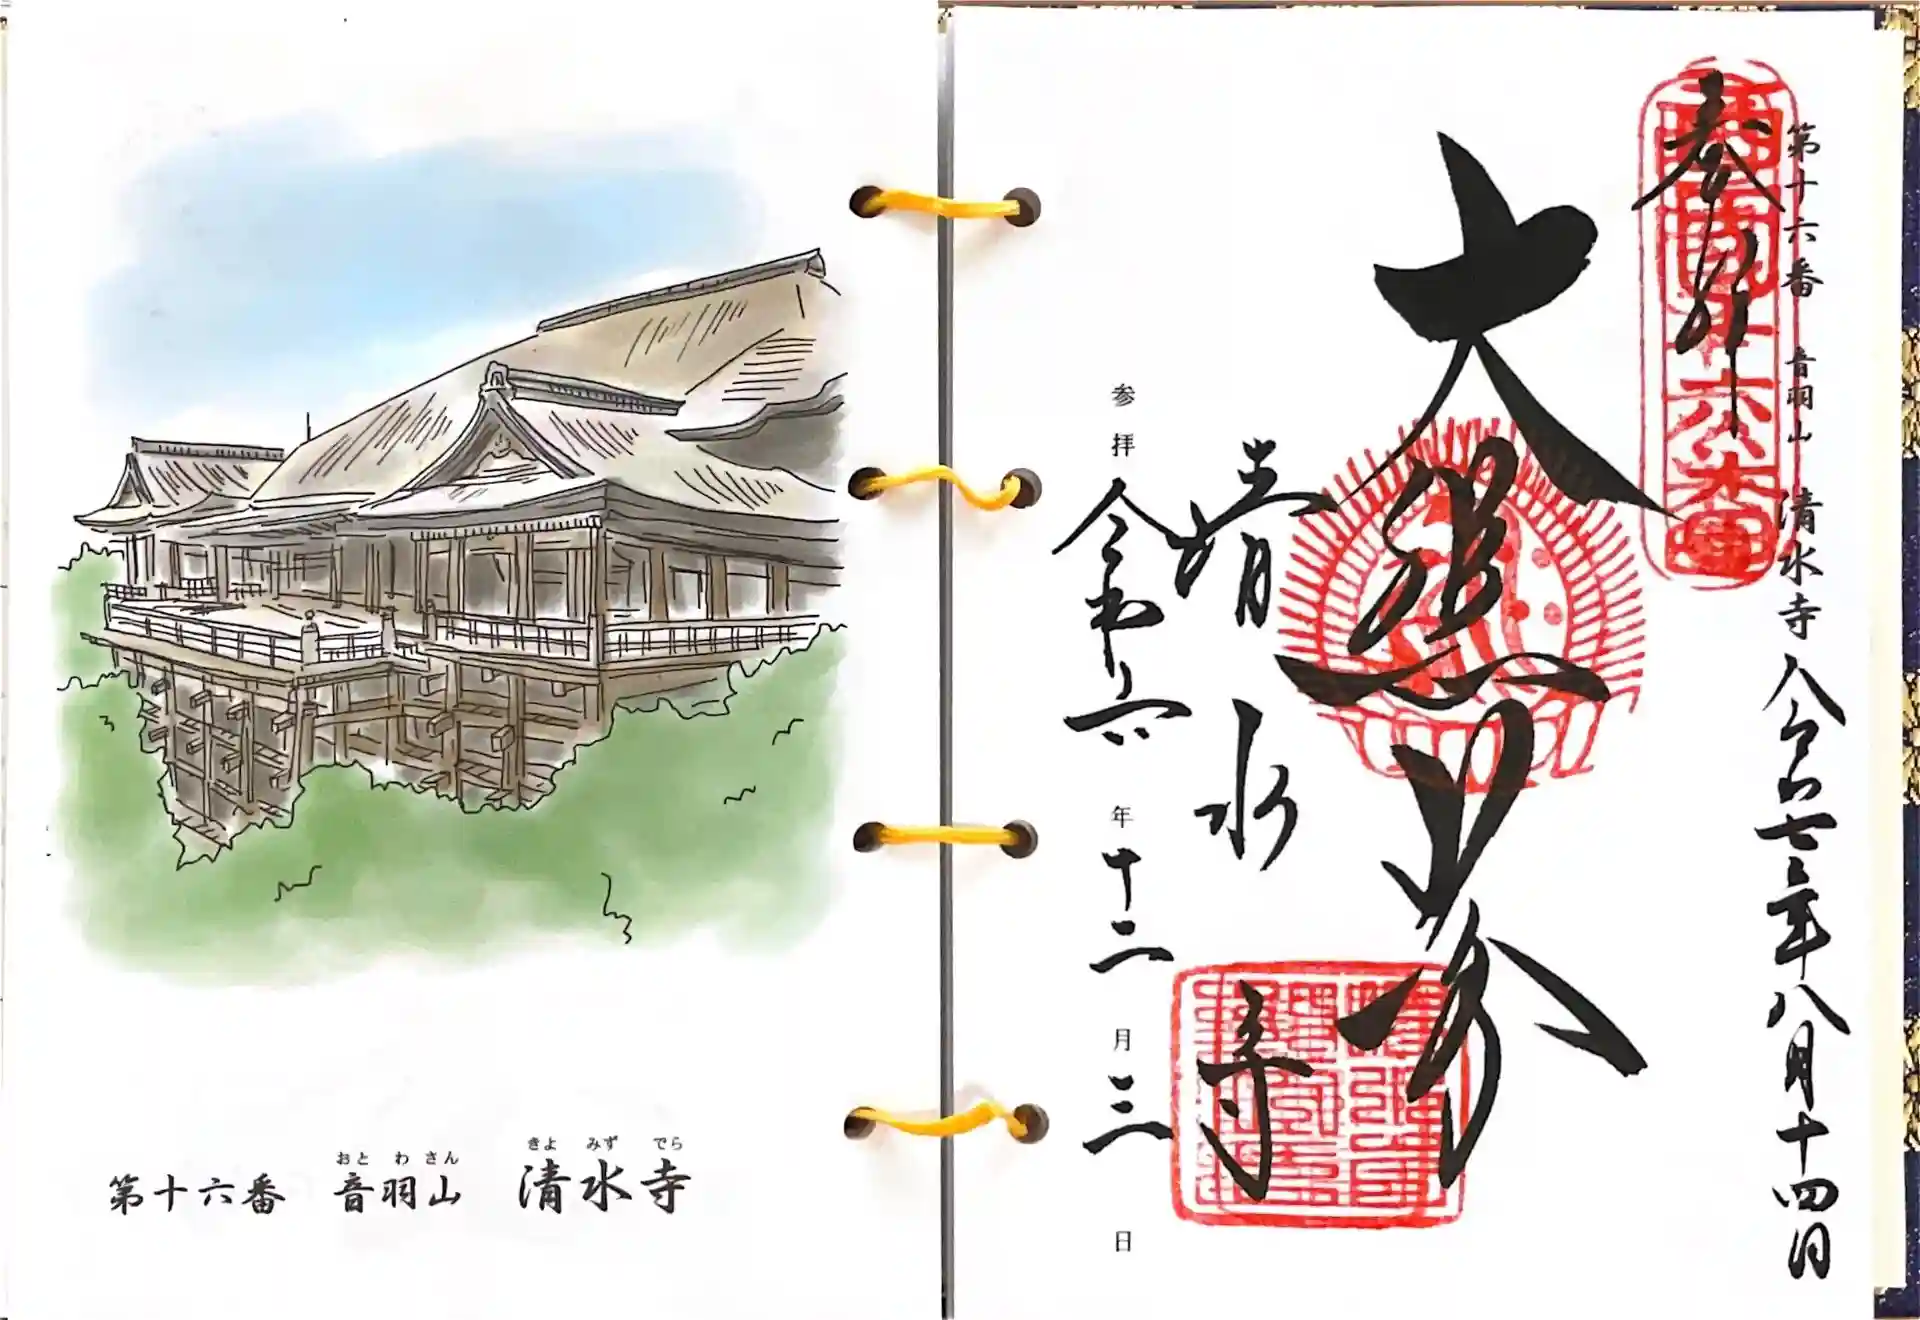 おと わ さん きよ みず でら
第十六番 音羽山 清水寺
第十六番 音羽山 清水寺 令和七年八月十四日
奉拝
大悲閣
清水寺
参拝 令和六年十二月三日